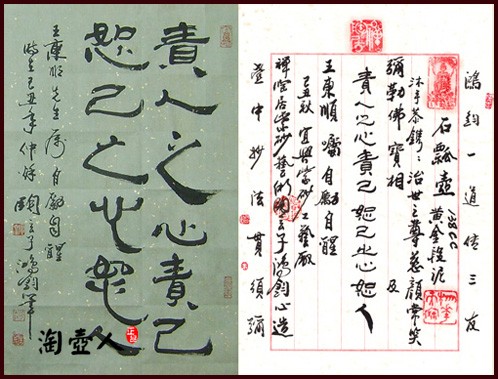 責人之心責己
恕己之心恕人
王東順先生屬自勵自醒
時在己丑年仲
淘壺人
鴻鈞一道傳三友
石瓢壺 黃金段泥
沐手恭鐫：治世之尊慈顏常笑
彌勒佛寶相 及
責人之心責己 恕己之心恕人
王東順屬 自勵自醒
己丑秋 宜興紫砂工藝廠
禪定居紫砂藝術 子鴻鈞心造
壺中妙法貫須彌